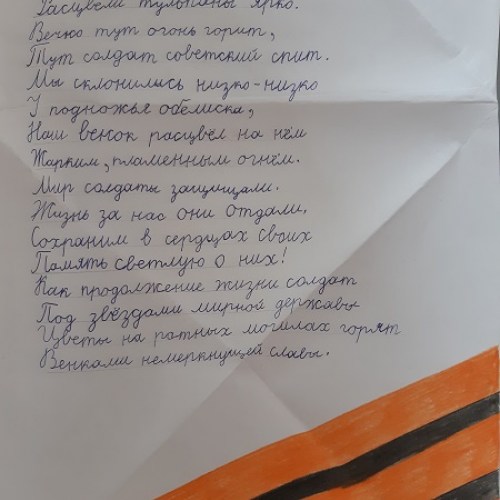 Расцвели тюльпаны ярко.
Вечно тут огонь горит,
Тут солдат советский спит.
Мы склонились низко-низко
У подножья обелиска,
Наш венок расцвёл на нём
Жарким, пламенным огнём.
Мир солдаты защищали.
Жизнь за нас они отдали,
Сохраним в сердцах своих
Память светлую о них!
Как продолжение жизни солдат
Под звёздами мирной державы
Цветы на ратных могилах горят
Венками немеркнущей славы.